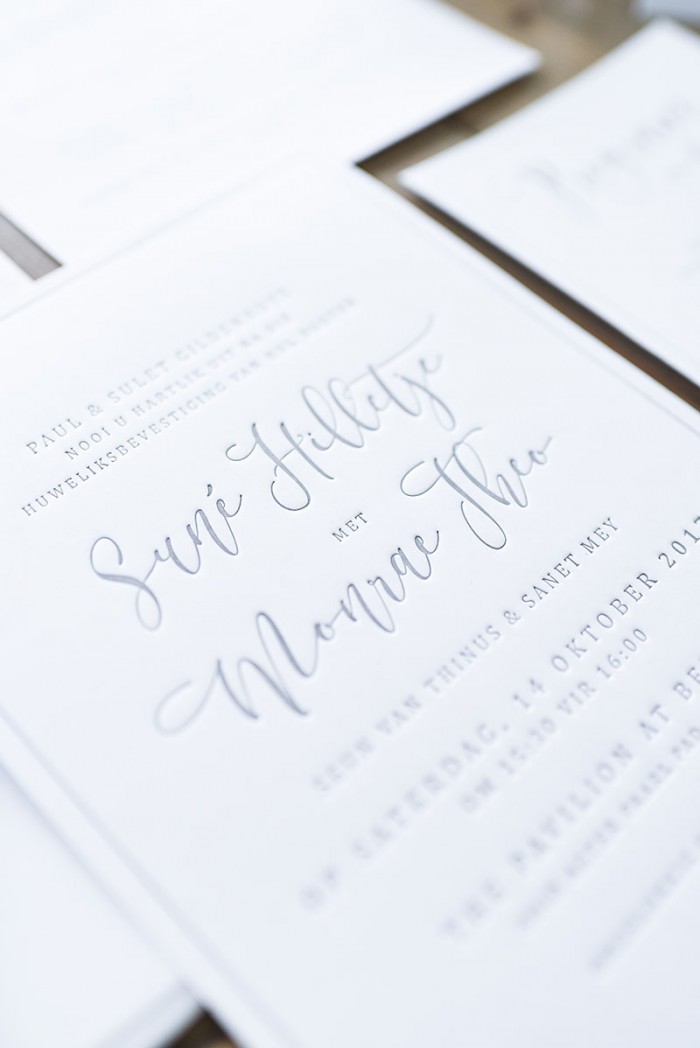 PAUL & SULET
NOOI U HARTLIK UIT NA DIE
HUWELIKSBEVESTIGING VAN HUL DOGTER
Suné Hilletje
MET
Monrae Theo
SEUN VAN THINUS & SANET MEY
OP SATERDAG, 14 OKTOBER 2017
OM 15:30 VIR 16:00
THE PAVILION AT